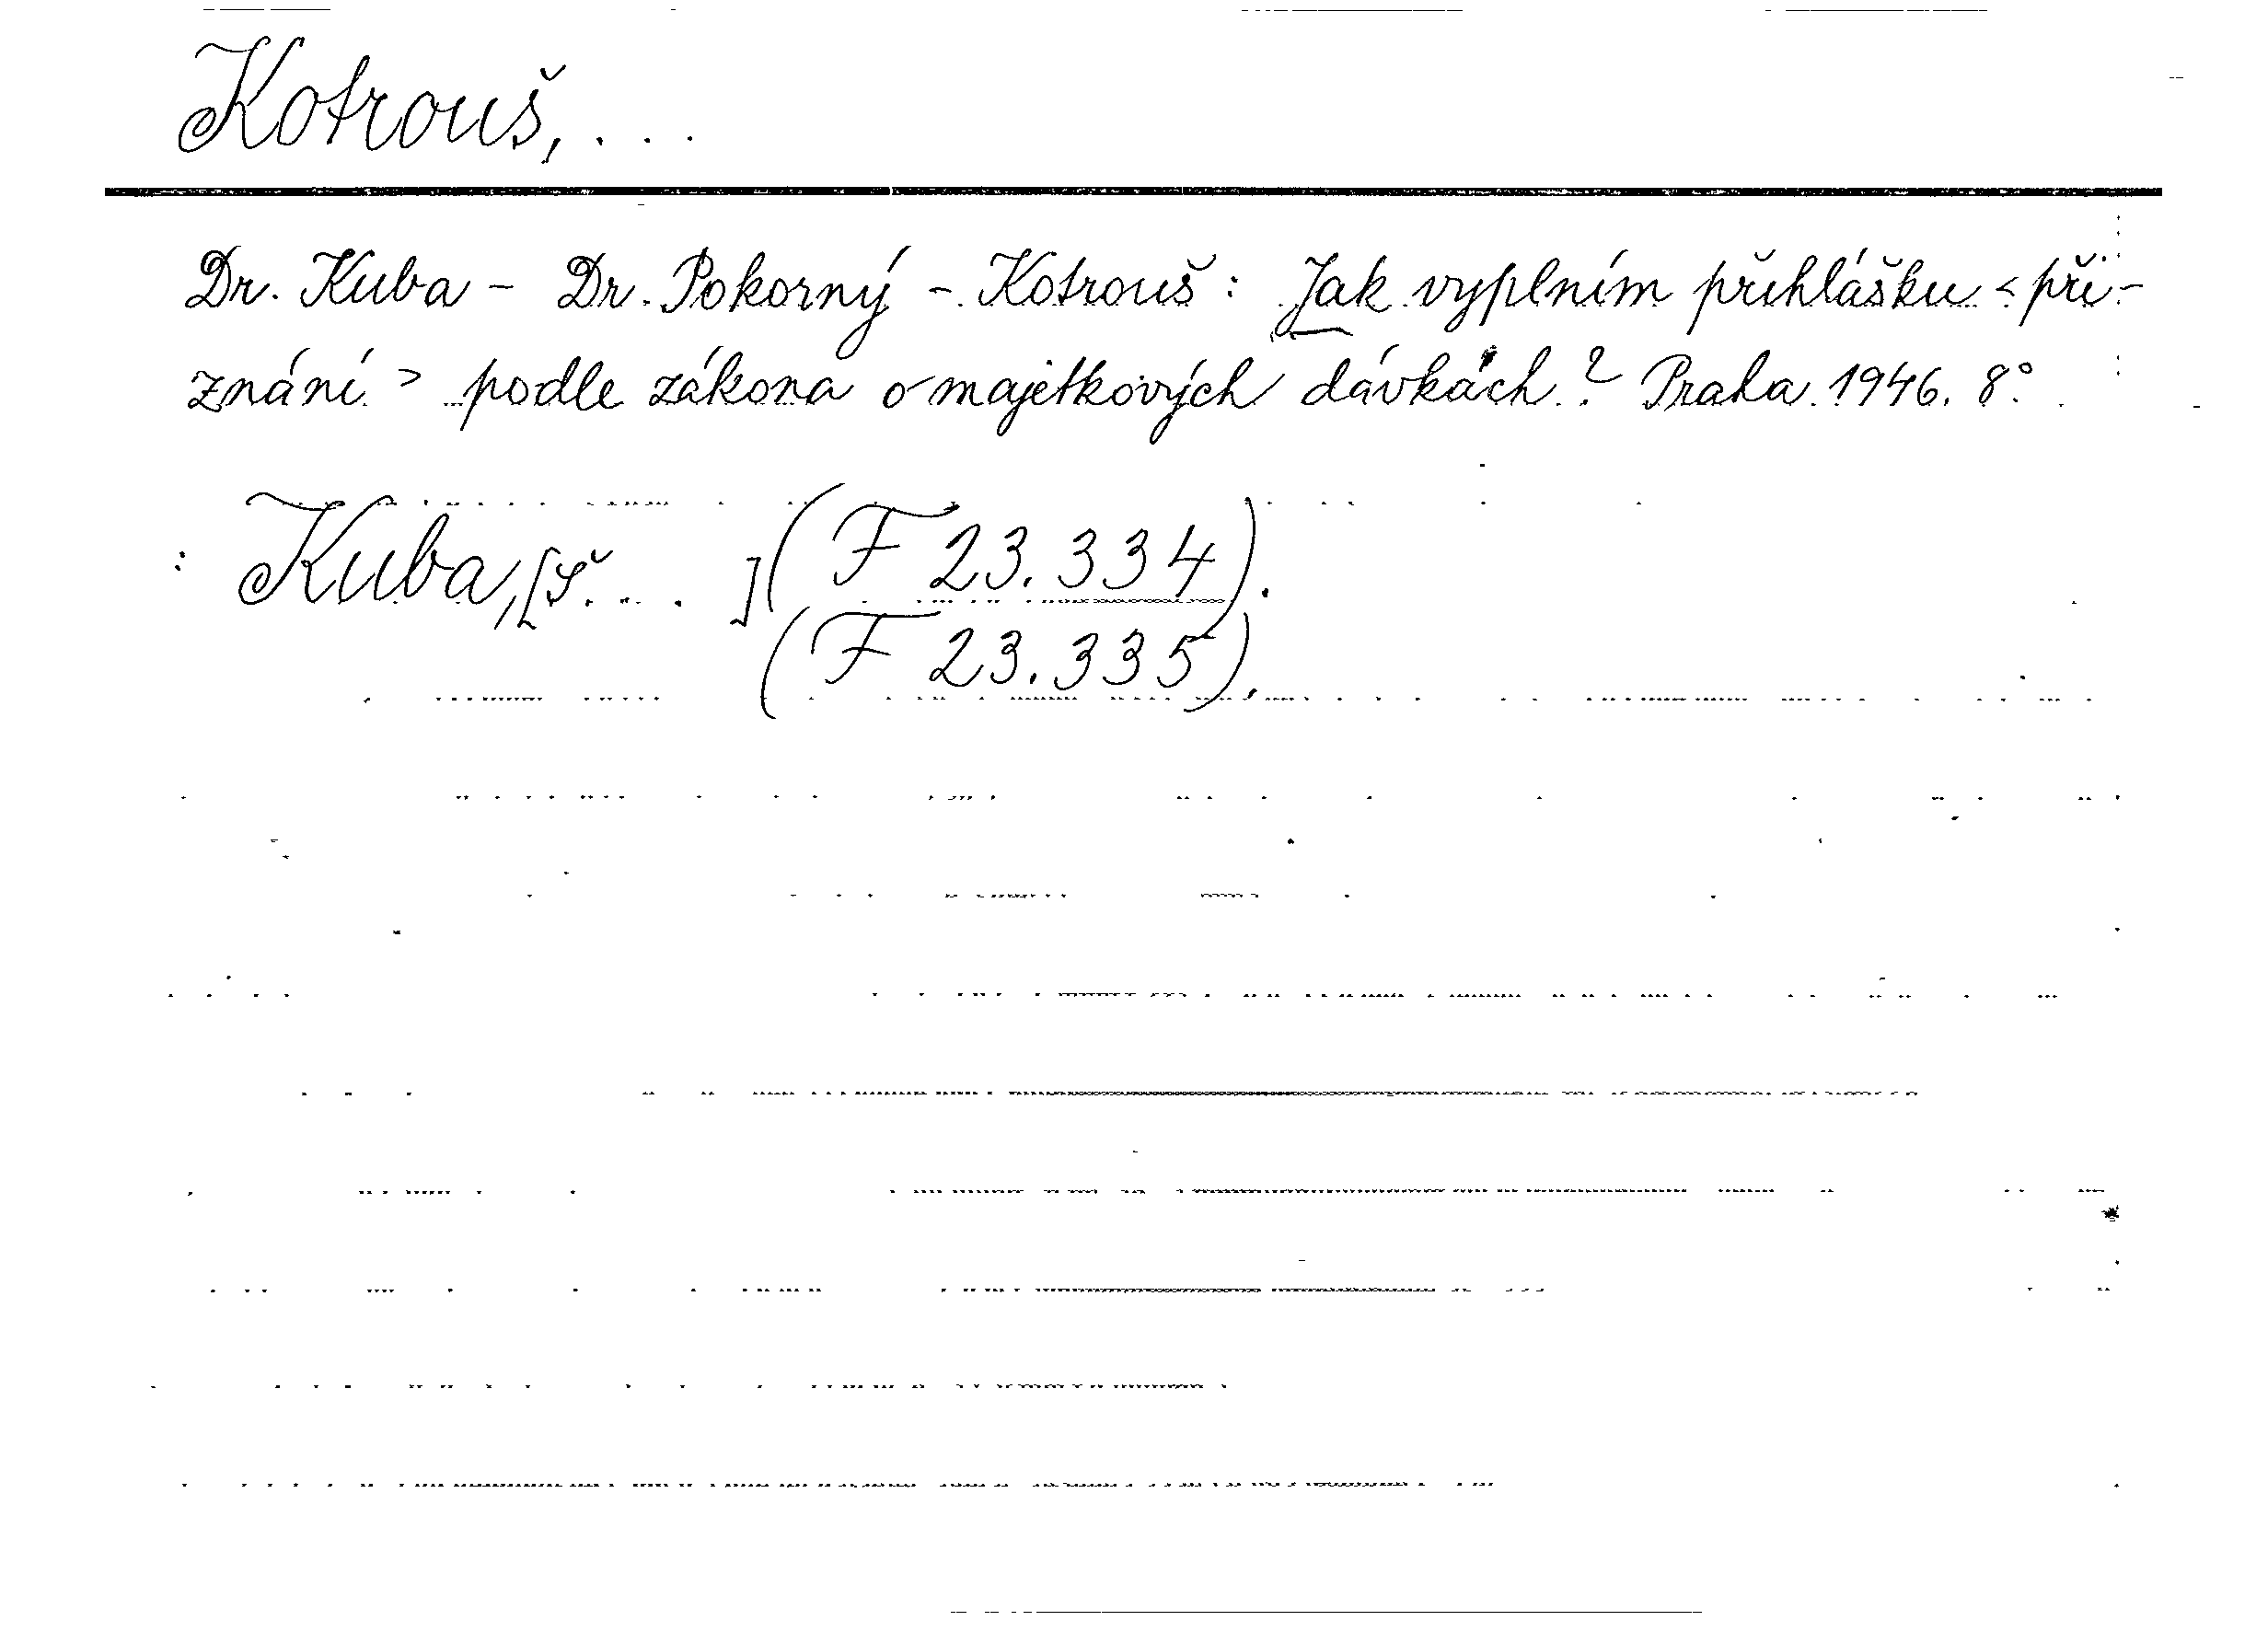 Kotrouš, . . .
Dr. Kuba - Dr. Pokorný - Kotrouš: Jak vyplním přihlášku < při-
znání > podle zákona o majetkových dávkách? Praha 1946. 8°.
: Kuba, [Š. . . . ] (F 23.334).
(F 23.335).